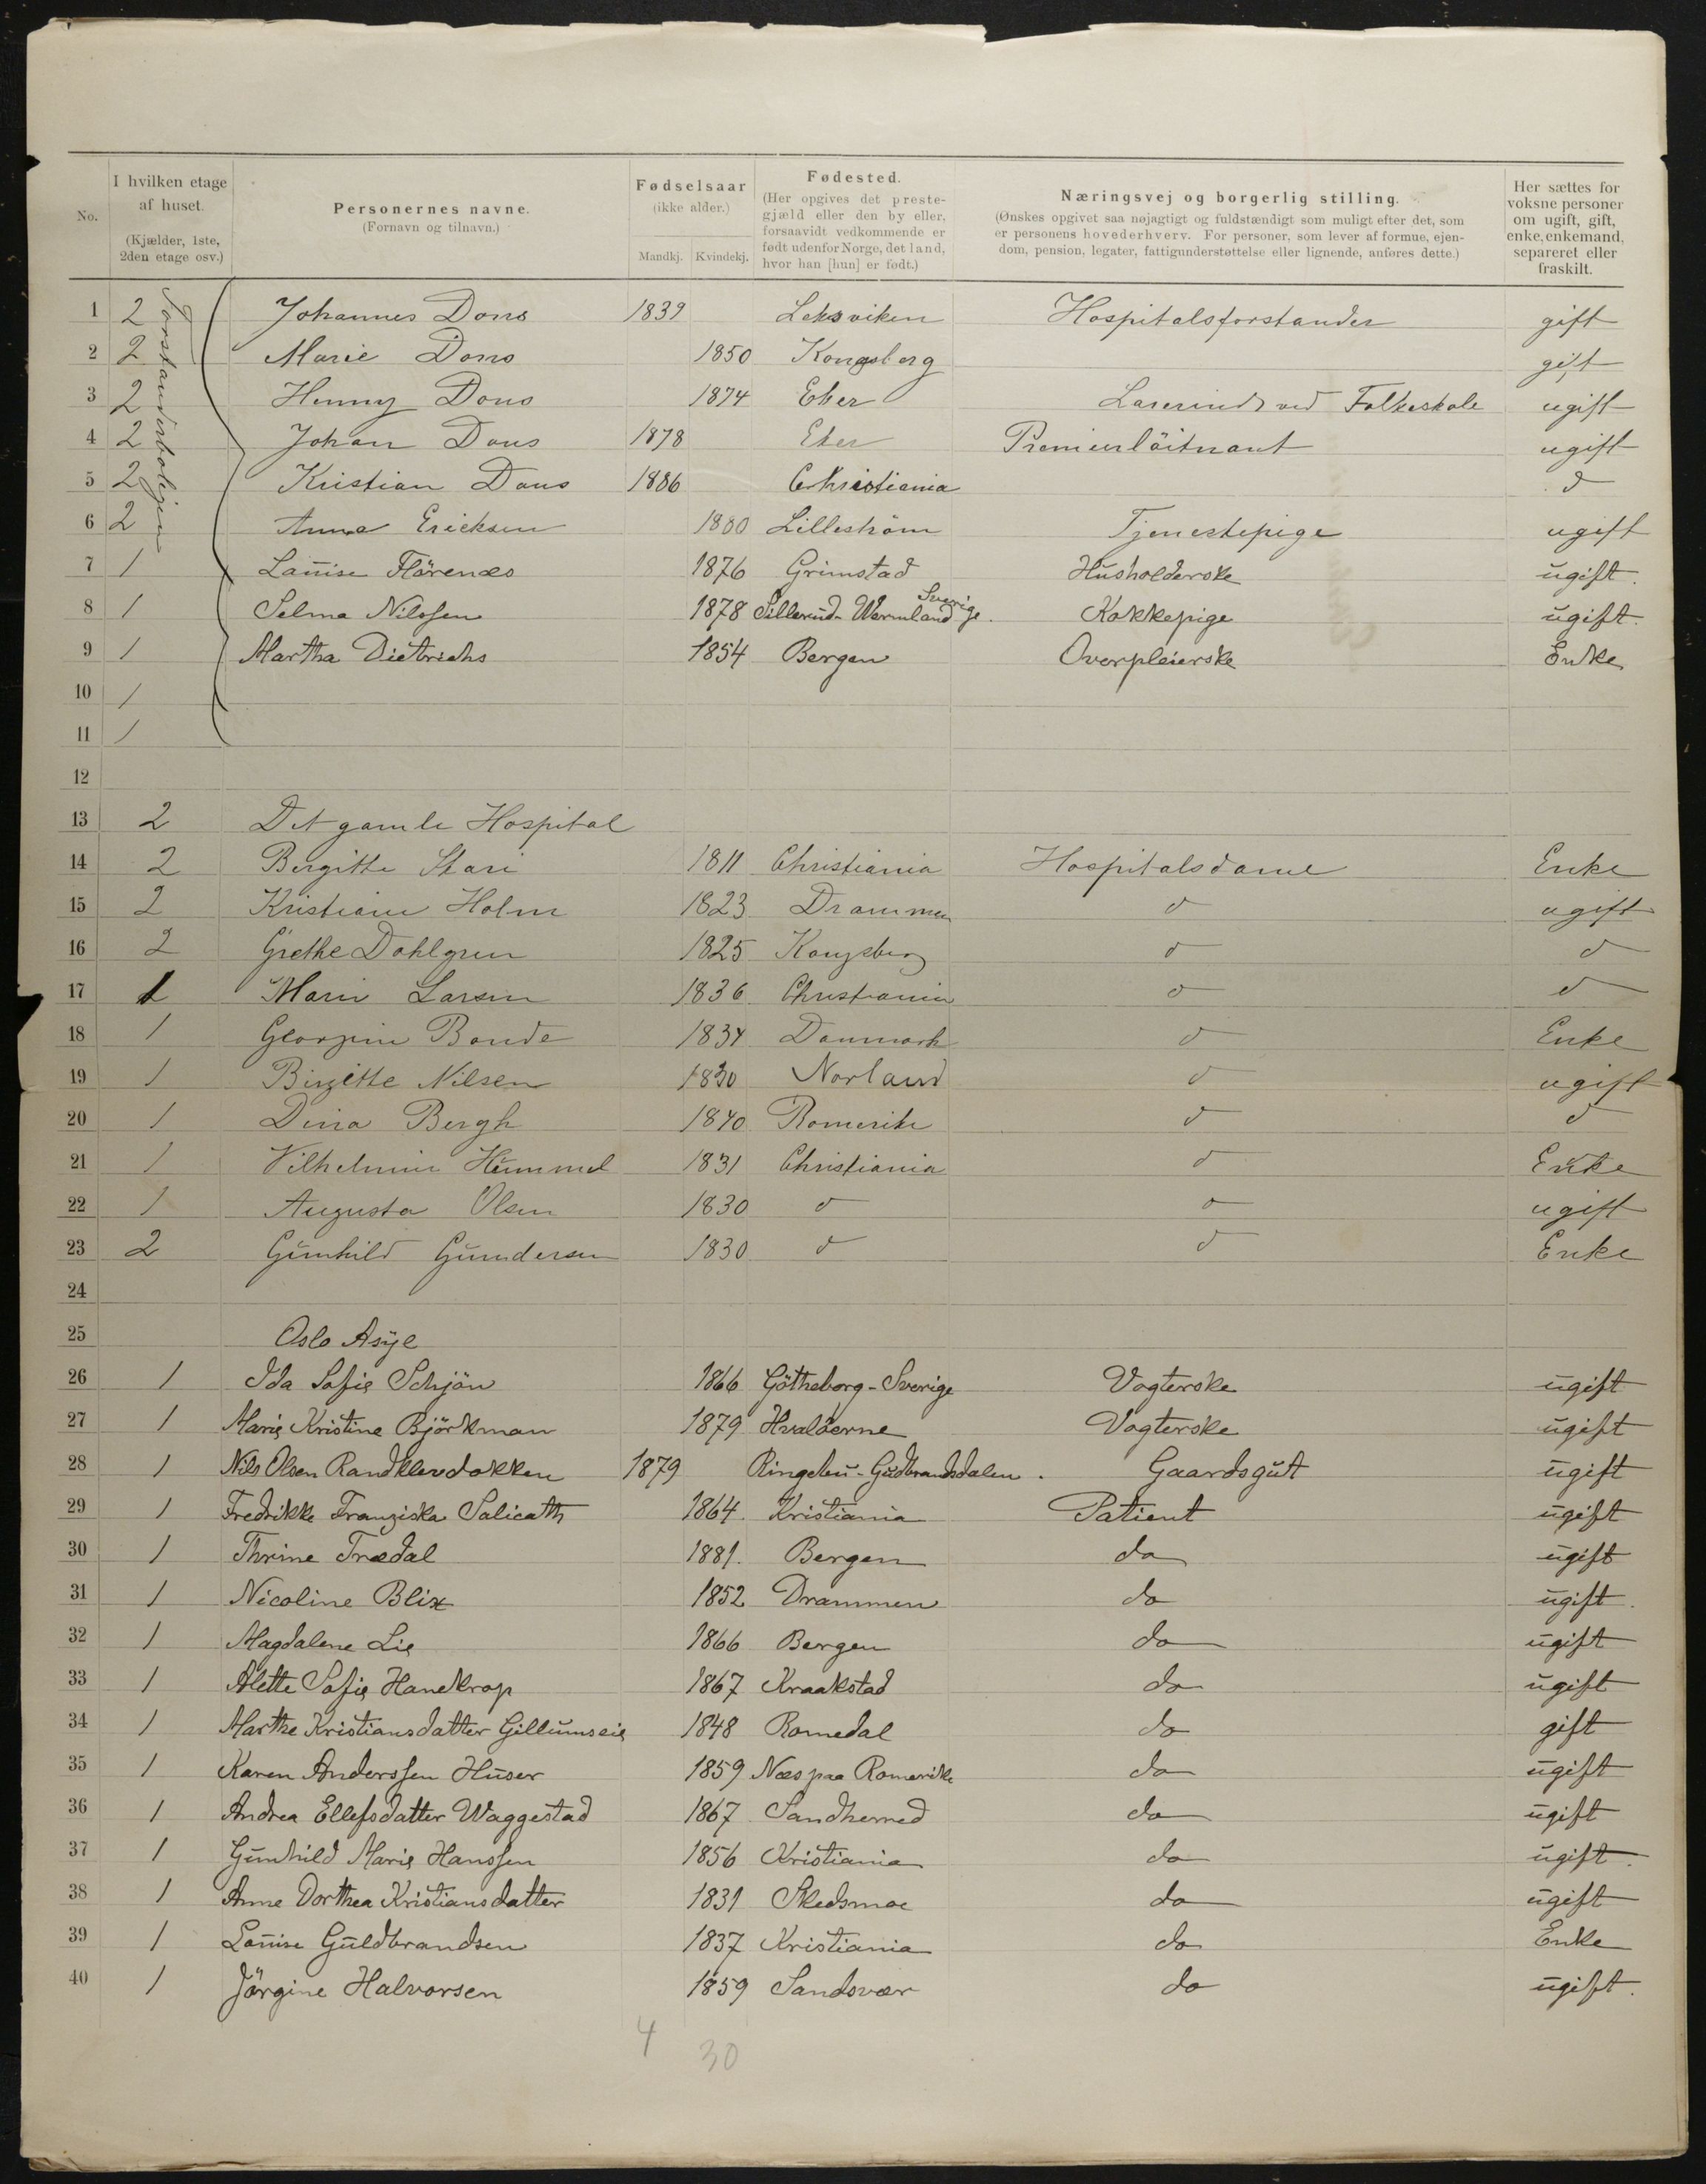 I hvilken etage af huset. (Kjælder, 1ste, 2den etage osv.)
No.
Personernes navne. (Fornavn og tilnavn.)
Fødselsaar (ikke alder.) Mandkj. Kvindekj.
Fødested. (Her opgives det prestegjæld eller den by eller, forsaavidt vedkommende er født udenfor Norge, det land, hvor han [hun] er født.)
Næringsvej og borgerlig stilling. (Ønskes opgivet saa nøjagtigt og fuldstændigt som muligt efter det, som er personens hovederhverv. For personer, som lever af formue, ejendom, pension, legater, fattigunderstøttelse eller lignende, anføres dette.)
Her sættes for voksne personer om ugift, gift, enke, enkemand, separeret eller fraskilt.
Forstanderboligen
1 2 Johannes Dons 1839 Leksviken Hospitalsforstander gift
2 2 Marie Dons 1850 Kongsberg gift
3 2 Henny Dons 1874 Eker Lærerinde ved Folkeskole ugift
4 2 Johan Dons 1878 Eker Premierlöitnant ugift
5 2 Kristian Dons 1886 Christiania d
6 2 Anna Ericksen 1880 Lilleström Tjenestepige ugift
7 1 Lauise Flörenæs 1876 Grimstad Husholderske ugift.
8 1 Selma Nilssen 1878 Sillerud-Wermland Sverige. Kokkepige ugift.
9 1 Martha Dietrichs 1854 Bergen Overpleierske Enke
10 1
11 1
12
13 2 Det gamle Hospital
14 2 Bergitte Stari 1811 Christiania Hospitalsdame Enke
15 2 Kristiane Holm 1823 Drammen d ugift
16 2 Grethe Dahlgren 1825 Kongsberg d d
17 1 Marie Larsen 1836 Christiania d d
18 1 Georgine Bonde 1834 Danmark d Enke
19 1 Birgitte Nilsen 1830 Norland d ugift
20 1 Dina Bergh 1840 Romerike d d
21 1 Vilhelmine Hummel 1831 Christiania d Enke
22 1 Augusta Olsen 1830 d d ugift
23 2 Gunhild Gundersen 1830 d d Enke
24
25 Oslo Asyl
26 1 Ida Sofie Schjön 1866 Götheborg-Sverige Vogterske ugift
27 1 Marie Kristine Björkman 1879 Hvalöerne Vogterske ugift
28 1 Nils Olsen Randklevdokken 1879 Ringebu-Gudbrandsdalen. Gaardsgut ugift
29 1 Fredrikke Franziska Salicath 1864. Kristiania Patient ugift
30 1 Thrine Trædal 1881. Bergen do ugift
31 1 Nicoline Blix 1852 Drammen do ugift.
32 1 Magdalene Lie 1866 Bergen do ugift
33 1 Alette Sofie Hanekrop 1867 Kraakstad do ugift
34 1 Marthe Kristiansdatter Gillumseie 1848 Romedal do gift
35 1 Karen Anderssen Huser 1859 Næs paa Romerike do ugift
36 1 Andrea Ellefsdatter Waggestad 1867 Sandherred do ugift
37 1 Gunhild Marie Hanssen 1856 Kristiania do ugift.
38 1 Anne Dorthea Kristiansdatter 1831 Skedsmoe do ugift
39 1 Louise Guldbrandsen 1837 Kristiania do Enke
40 1 Jörgine Halvorsen 1859 Sandsvær do ugift.
4 30